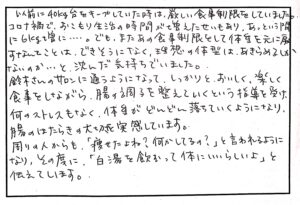 以前に40kg台をキープしていた時は、厳しい食事制限をしていました。
コロナ禍で、おこもり生活の時間が増えたせいもあり、あっという間
に6kg増に……。でも、また前の食事制限をして体重を元に戻
すなんてことは、できそうになく、理想の体型は、あきらめるしか
ないのか…と 沈んだ気持ちでいました。
鈴木さんの サロンに通うようになって、しっかりと、おいしく、楽しく
食事をしながら、腸の周りを整えていくという指導を受け、
何のストレスもなく、体重がどんどん落ちていくようになり、
腸のはたらきの大切さを実感しています。
周りの人からも、「痩せたよね?何かしてるの?」と言われるように
なり、その度に、「白湯を飲むって体にいいらしいよ」と
伝えてします。